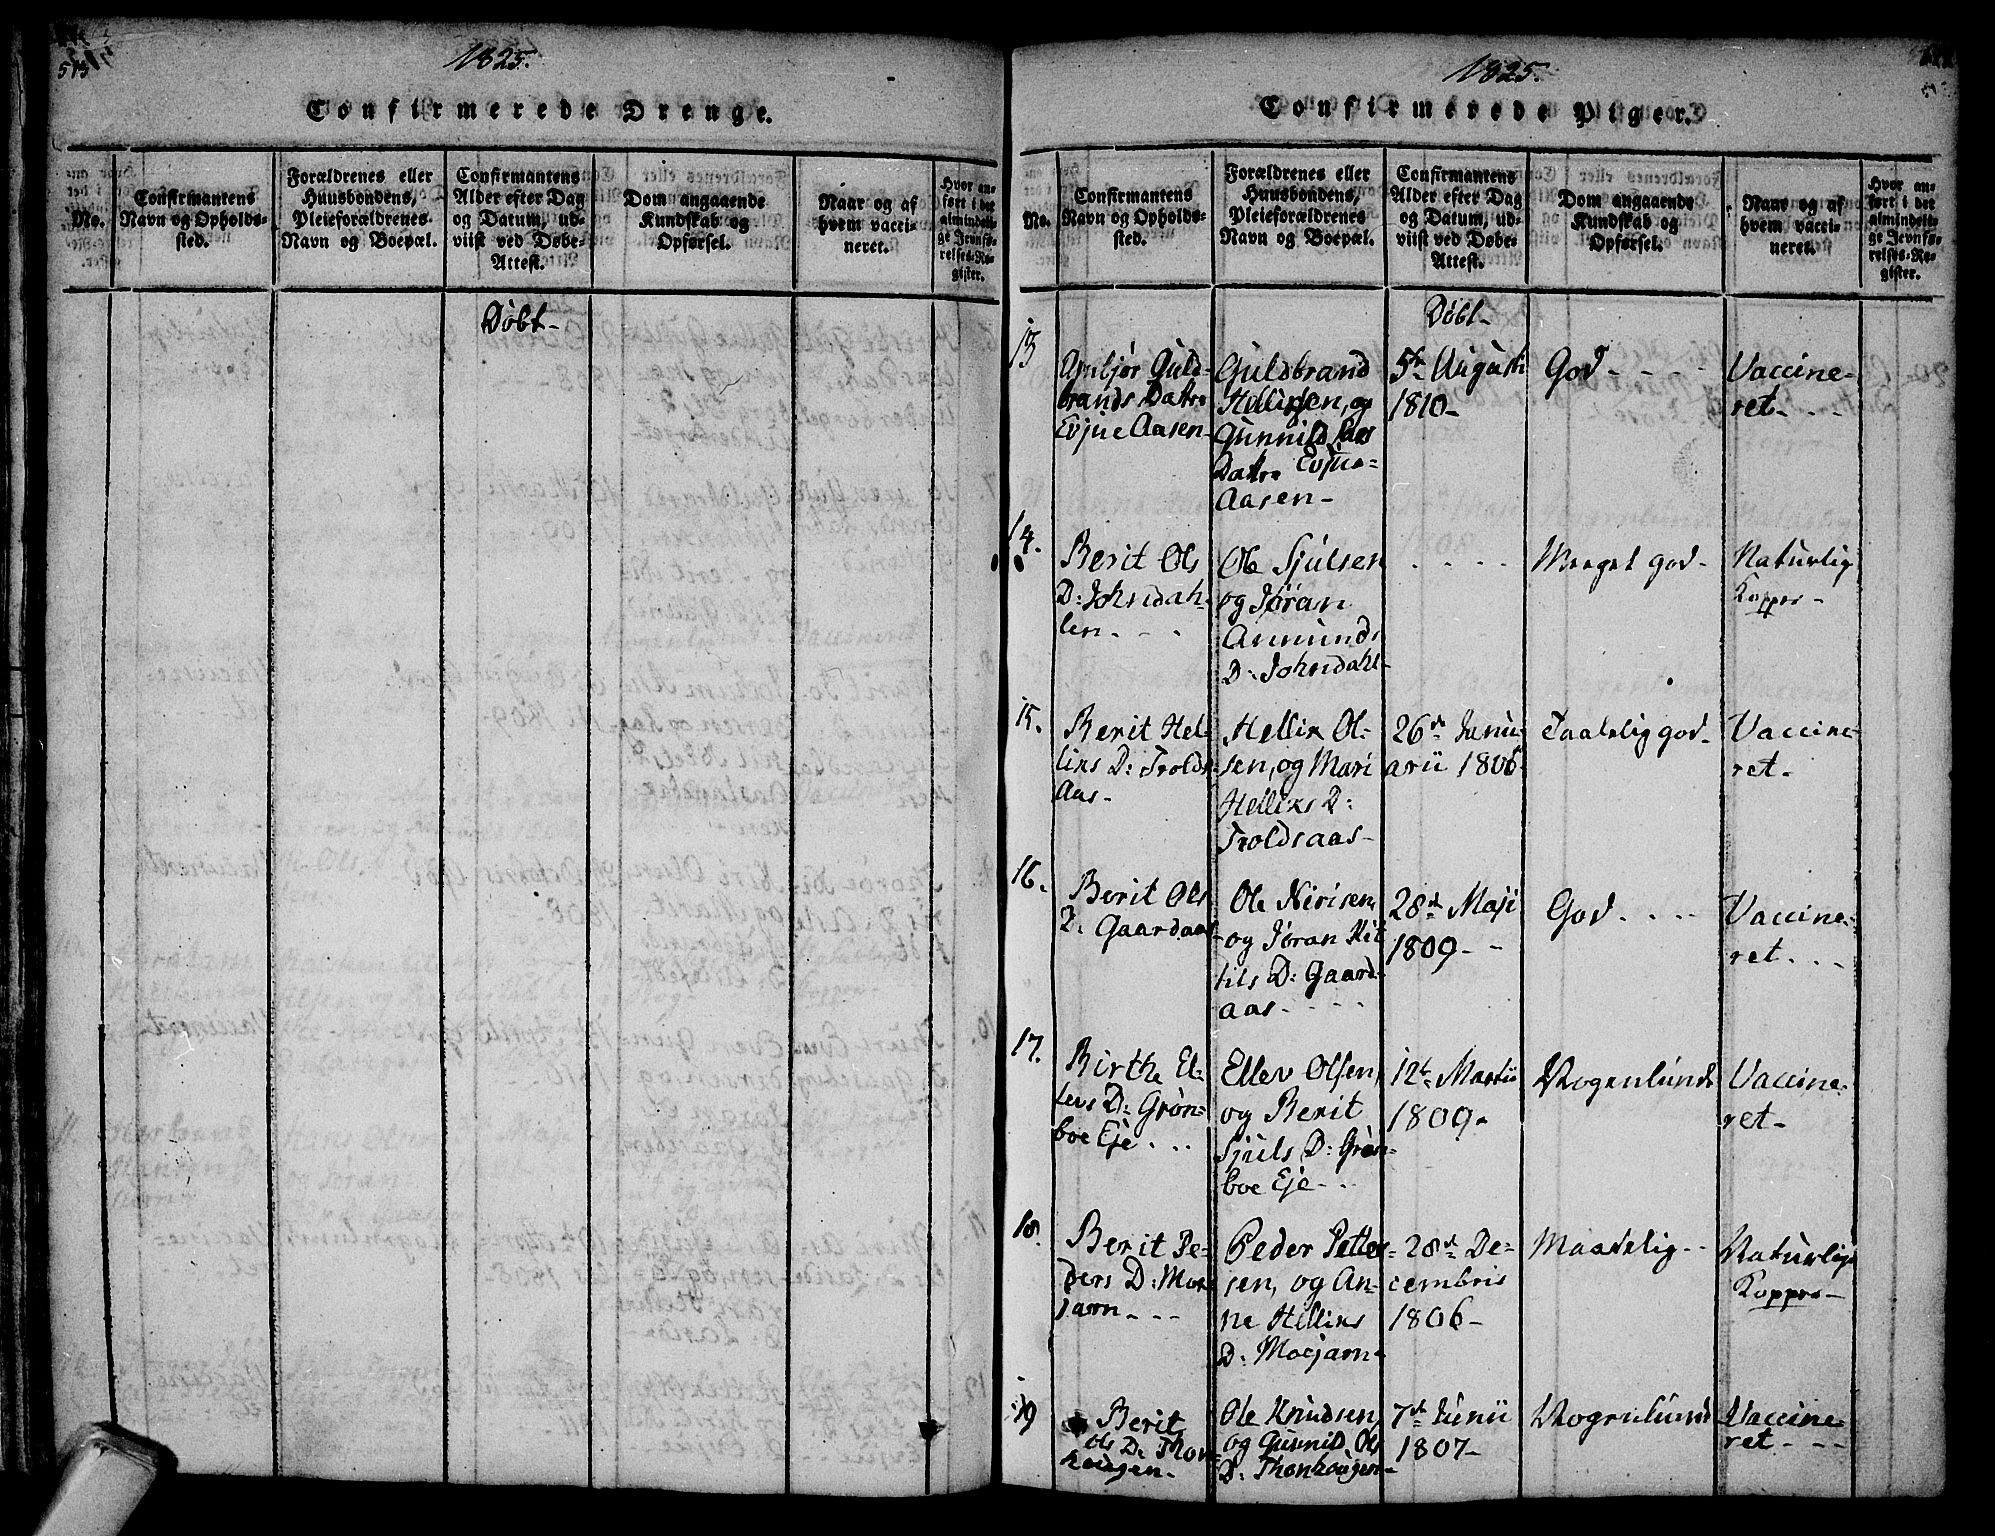 1825.
Confirmerede Drenge.
No.
Confirmantens
Navn og Opholds-
sted.
Forældrenes eller
Huusbondens,
Pleieforældrenes
Navn og Boepæl.
Confirmantens
Alder efter Dag
og Datum, ud-
viist ved Døbe-
Attest.
Dom angaaende
Kundskab og
Opførsel.
Naar og af
hvem vacci-
neret.
Hvor an-
ført i det
almindeli-
ge Jevnfø-
relses-Re-
gister.
Döbt-
1825.
Confirmerede Piger.
No.
Confirmantens
Navn og Opholds-
sted.
Forældrenes eller
Huusbondens,
Pleieforældrenes
Navn og Boepæl.
Confirmantens
Alder efter Dag
og Datum, ud-
viist ved Døbe-
Attest.
Dom angaaende
Kundskab og
Opførsel.
Naar og af
hvem vacci-
neret.
Hvor an-
ført i det
almindeli-
ge Jevnfø-
relses-Re-
gister.
Döbt-
13
Ambjør Guld-
brands Datter
Evjue Aasen-
Guldbrand
Hellissen, og
Gunnild Lars
Datter Evjue-
Aasen-
5te Augusti
1810-
God- - - -
Vaccine-
ret- - -
14.
Berit Ols
D: Johndah-
len- - -
Ole Sjulsen
og Jöran
Anmunds
D: Johndahl-
- - - -
Meeget god-
Naturlig
Kopper-
15.
Berit Hel-
liks D: Trolds-
aas-
Hellik Ol-
sen, og Mari
Helliks D:
Troldsaas-
26de Janu-
arii 1806-
Taalelig god-
Vaccine-
ret-
16.
Berit Ols
D: Gaardaas-
Ole Kirisen,
og Jöran Kit
tils D: Gaard-
aas- - - -
28de Maji
1809- -
God. . - -
Vaccine-
ret. . .
17.
Birthe El-
levs D: Grön-
boe Eje. . .
Ellev Olsen,
og Berit
Sjuls D: Grön-
boe Eje- - -
12te Martii
1809-
Nogenlunde
Vaccine-
ret-
18.
Berit Pe-
ders D: Moe-
jarn- - -
Peder Petter-
sen, og An-
ne Helliks
D: Moejarn-
28de De-
cembris
1806-
Maadelig- -
Naturlige
Kopper-
19
Berit
Ols D: Thon-
hougen-
Ole Knudsen,
og Gunnild Ols
D: Thonhougen-
7de Junii
1807-
Nogenlunde
Vaccine-
ret- - -